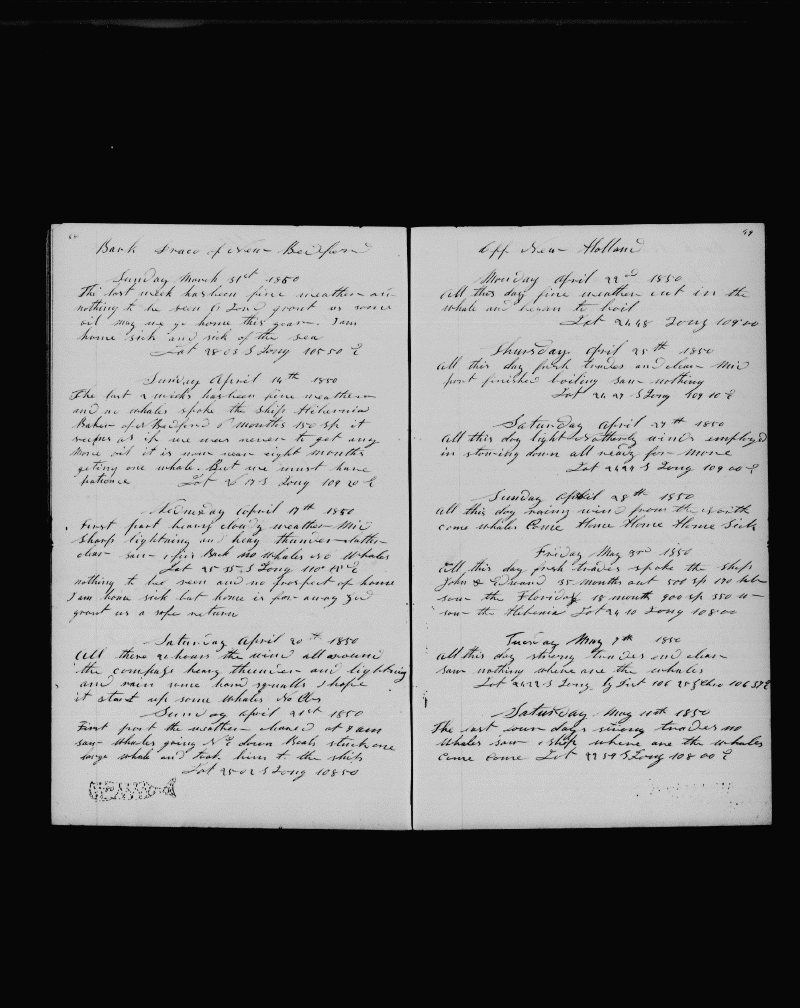 Bark Draco of New Bedford
Sunday March 31st 1850
The last week has been fine weather and
nothing to be seen O Lord grant us some
oil may we go home this year. I am
home sick and sick of the sea
Lat 28 05 S Long 105 50 E
Sunday April 14th 1850
The last 2 weeks has been fine weather
and no whales spoke the ship Hibernia
Baker of N Bedford 6 months 150 sp it
seems as if we was never to get any
more oil it is now near eight months
geting one whale. But we must have
patience Lat 17 S Long 109 20 E
Wednesday April 17th 1850
First part heavy cloudy weather Mid
sharp lightning and heavy thunder latter
clear saw a Bark no whales no whales
Lat 25 35 S Long 110 E
nothing to be seen and no prospect of home
I am home sick but home is far away God
grant us a safe return
Saturday April 20th 1850
All these 24 hours the wind all around
the compass heavy thunder and lightning
and rain some hard squalls I hope
it start up some whales No
Sunday April 21st 1850
First part the weather cleared at 8 am
saw whales going N E down Boats struck one
large whale and took him to the ship
Lat 25 02 S Long 108 50
49
Off New Holland
Monday April 22nd 1850
All this day fine weather cut in the
whale and began to boil
Lat 24 48 Long 109 00
Thursday April 25th 1850
All this day fresh trades and clear Mid
part finished boiling saw nothing
Lat 24 27 S Long 109 10 E
Saturday April 27th 1850
All this day light Northerly winds employed
in stowing down all ready for more
Lat 24 29 S Long 109 00 E
Sunday April 28th 1850
All this day raining wind from the North
come whales Come Home Home Home Sick
Friday May 3rd 1850
All this day fresh trades spoke the ship
John & Edward 35 months out 500 sp 170 bbl
saw the Florida 18 month 900 sp 350
saw the Hibernia Lat 24 10 Long 108 00
Tuesday May 7th 1850
All this day strong trades and clear
saw nothing where are the whales
Lat 24 22 S Long by Dist 106 25 Chro 106 57 E
Saturday May 11th 1850
The last four days strong trades no
whales saw a ship where are the whales
come come Lat 22 59 S Long 108 00 E